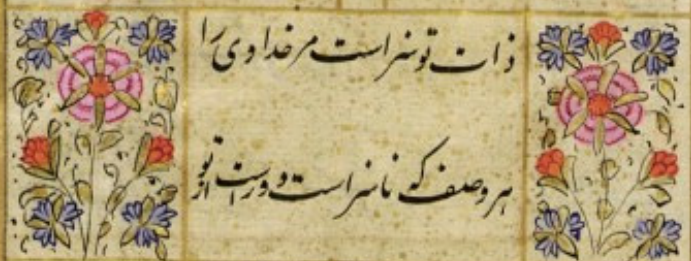 ذات تو سزاست مر خداوندی را
هر وصف که ناسزاست دور است از تو